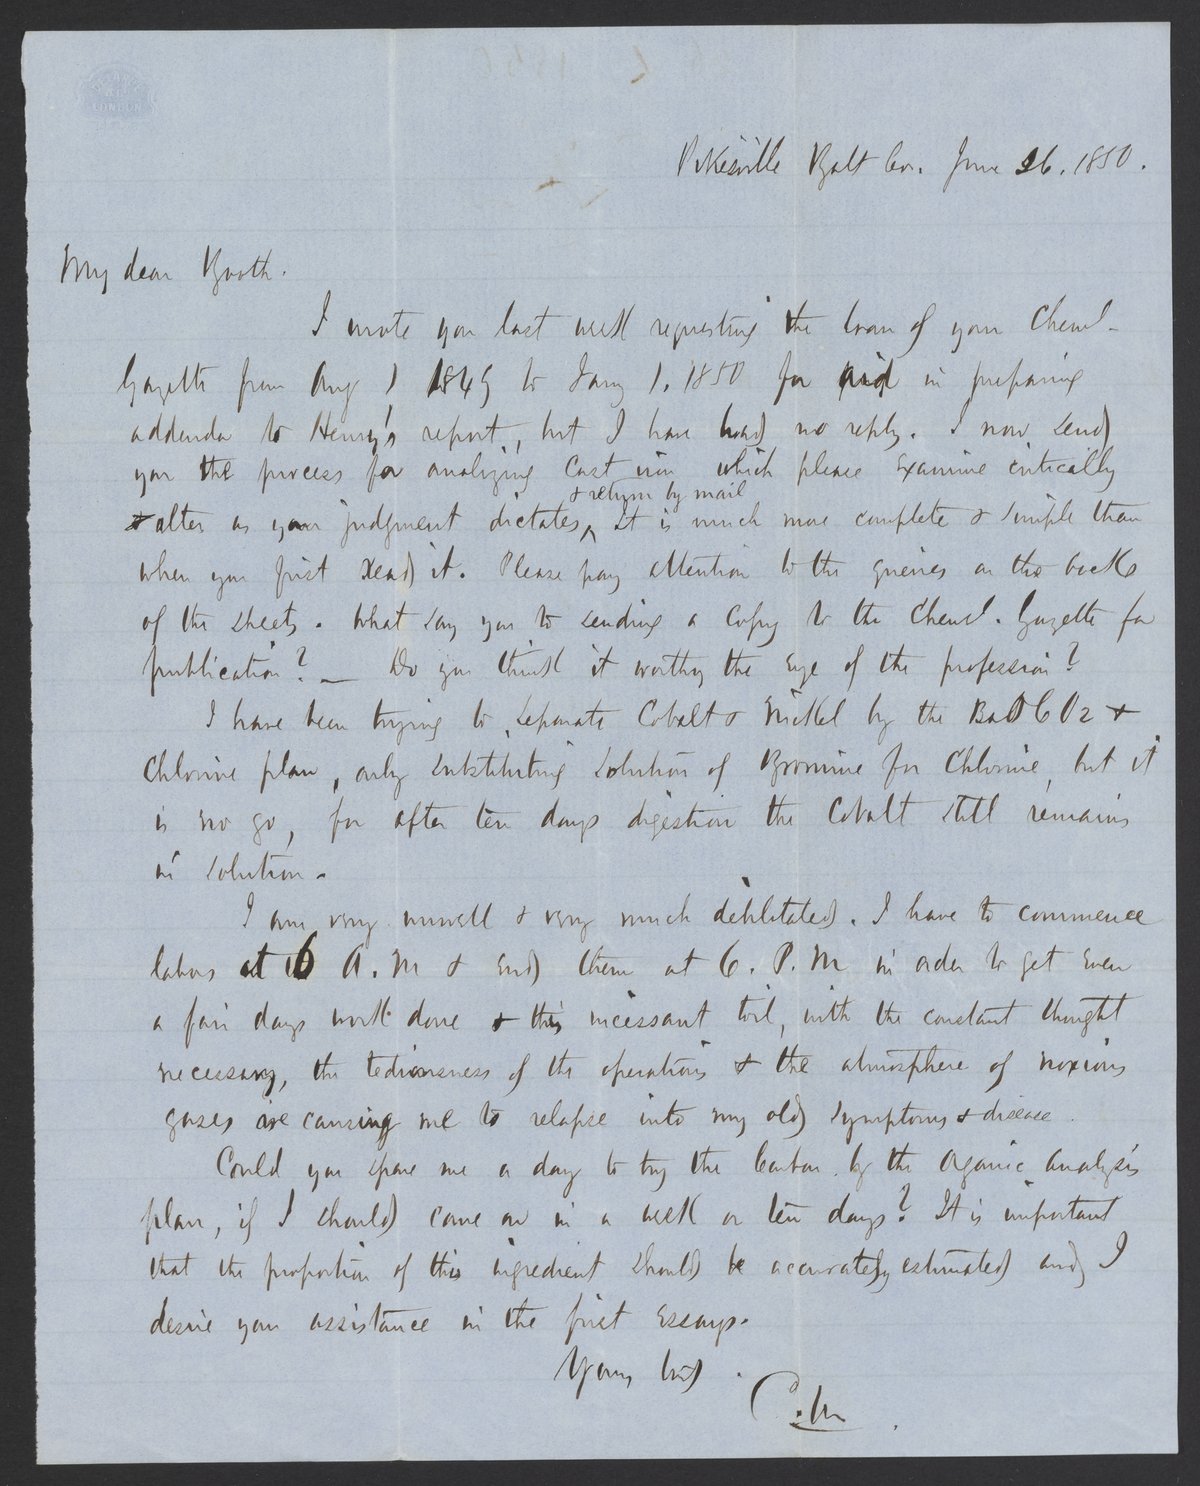 LONDON
Pikesville Balt Co. June 26. 1850.
My dear Booth.
I wrote you last week requesting the loan of your Cheml.
Gazette from Aug 1 1849 to Jany 1. 1850 for aid in preparing
addenda to Henry's report, but I have had no reply. I now send
you the process for analizing Cast iron which please examine critically
& return by mail
& alter as your judgment dictates ^ It is much more complete & simple than
when you first read it. Please pay attention to the queries on the backs
of the sheets. What say you to sending a Copy to the Cheml. Gazette for
publication? — Do you think it worthy the eye of the profession?
I have been trying to separate Cobalt & Nickel by the BaO CO2 &
Chlorine plan, only substituting solution of Bromine for Chlorine, but it
is no go, for after ten days digestion the Cobalt still remains
in solution.
I am very unwell & very much debilitated. I have to commence
labors at 6 A. M & end them at 6. P. M in order to get even
a fair days work done & this incessant toil, with the constant thought
necessary, the tediousness of the operations & the atmosphere of noxious
gases is causing me to relapse into my old symptoms & disease.
Could you spare me a day to try the Carbon by the Organic Analysis
plan, if I should come on in a week or ten days? It is important
that the proportion of this ingredient should be accurately estimated and I
desire your assistance in the first Essays.
Yours
C. M